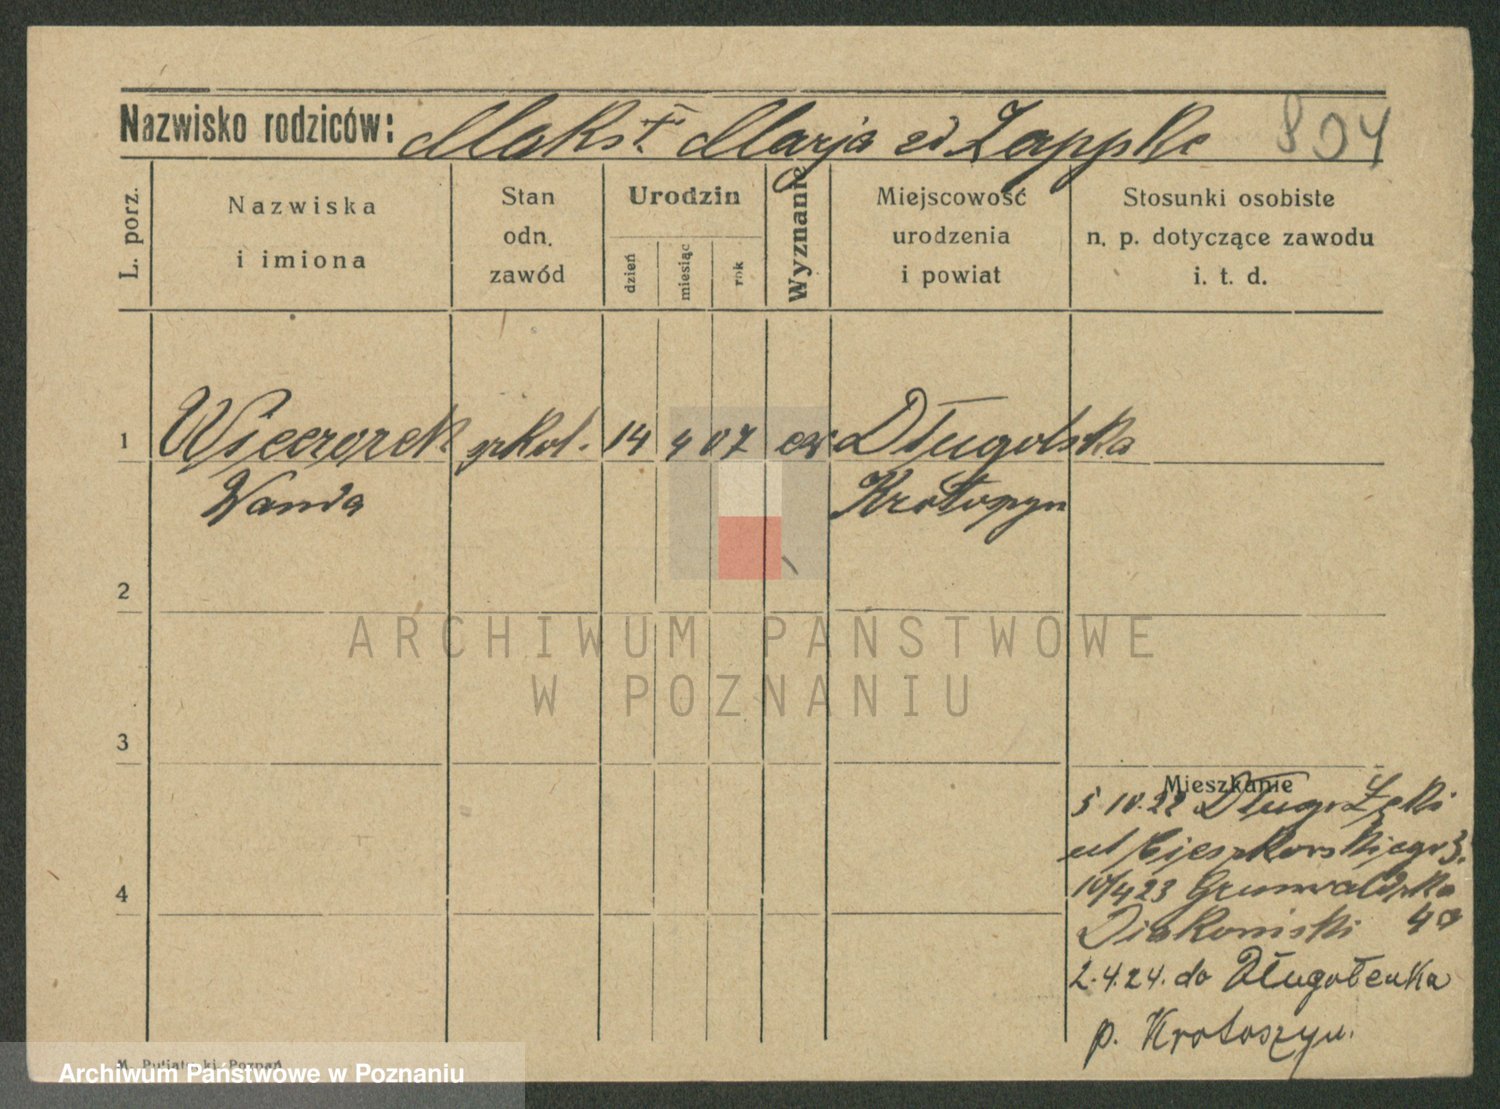 Nazwisko rodziców: Maks † Marja zd Zappke 804
L. porz.
Nazwiska i imiona
Stan odn. zawód
Urodzin
dzień miesiąc rok
Wyznanie
Miejscowość urodzenia i powiat
Stosunki osobiste n. p. dotyczące zawodu i. t. d.
1 Wieczorek szkol. 14 4 07 ew Długolska
Wanda Krotoszyn
2
ARCHIWUM PAŃSTWOWE
W POZNANIU
3
Mieszkanie
5 10.22 Długołęki
ul Cieszkowskiego 3.
10/4 23 Grunwaldzka
Diakoniski 49
2.4.24. do Długołenka
p. Krotoszyn.
4
M. Putiatycki, Poznań
Archiwum Państwowe w Poznaniu